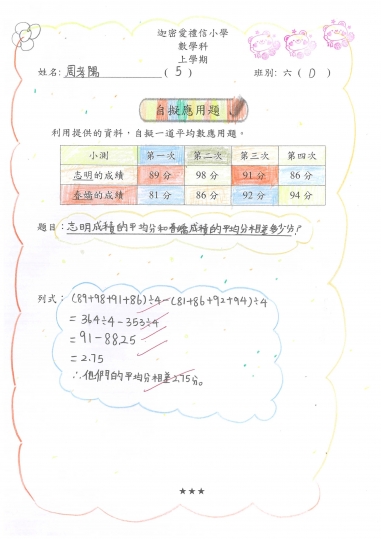 迦密愛禮信小學
數學科
上學期
姓名: 周孝陽 ( 5 ) 班別: 六 ( D )
自擬應用題
利用提供的資料，自擬一道平均數應用題。
小測 第一次 第二次 第三次 第四次
志明的成績 89 分 98 分 91 分 86 分
春嬌的成績 81 分 86 分 92 分 94 分
題目： 志明成積的平均分和春嬌成積的平均分相差多少分?
列式： (89+98+91+86)÷4-(81+86+92+94)÷4
= 364÷4-353÷4
= 91-88.25
= 2.75
∴他們的平均分相差2.75分。
★★★